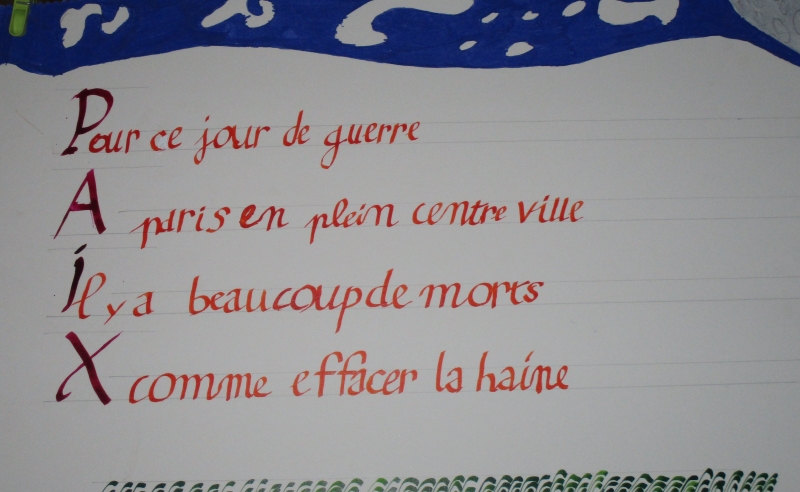 Pour ce jour de guerre
A paris en plein centre ville
il y a beaucoup de morts
X comme effacer la haine